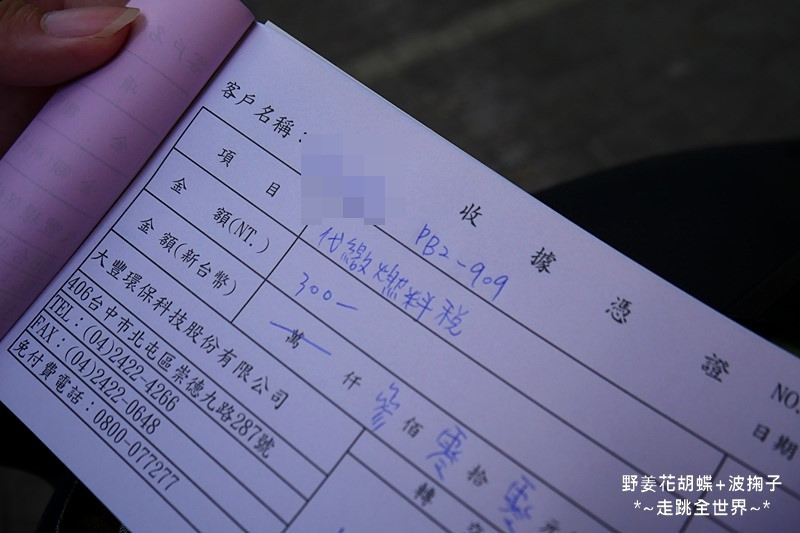 收據憑證
NO.
客戶名稱： PB2-909
日期
項目 代繳燃料稅
金額(NT.) 300-
金額(新台幣) 萬 仟 參 佰 零 拾 零 元
大豐環保科技股份有限公司
406台中市北屯區崇德九路287號
TEL：(04)2422-4266
FAX：(04)2422-0648
免付費電話：0800-077277
轉
野姜花胡蝶+波掬子
*~走跳全世界~*